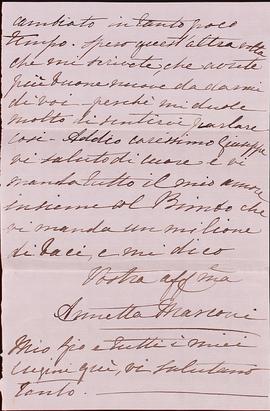 cambiato in tanto poco
tempo. spero quest'altra volta
che mi scrivete, che avrete
più buone nuove da darmi
di voi - perché mi duole
molto di sentirvi parlare
così - Addio carissimo Giuseppe
vi saluto di cuore e vi
mando tutto il mio amore
insieme al Bimbo che
vi manda un milione
di baci, e mi dico
Vostra aff ma
Annetta Marconi
Mio zio e tutti i miei
cugini quì, vi salutano
tanto.